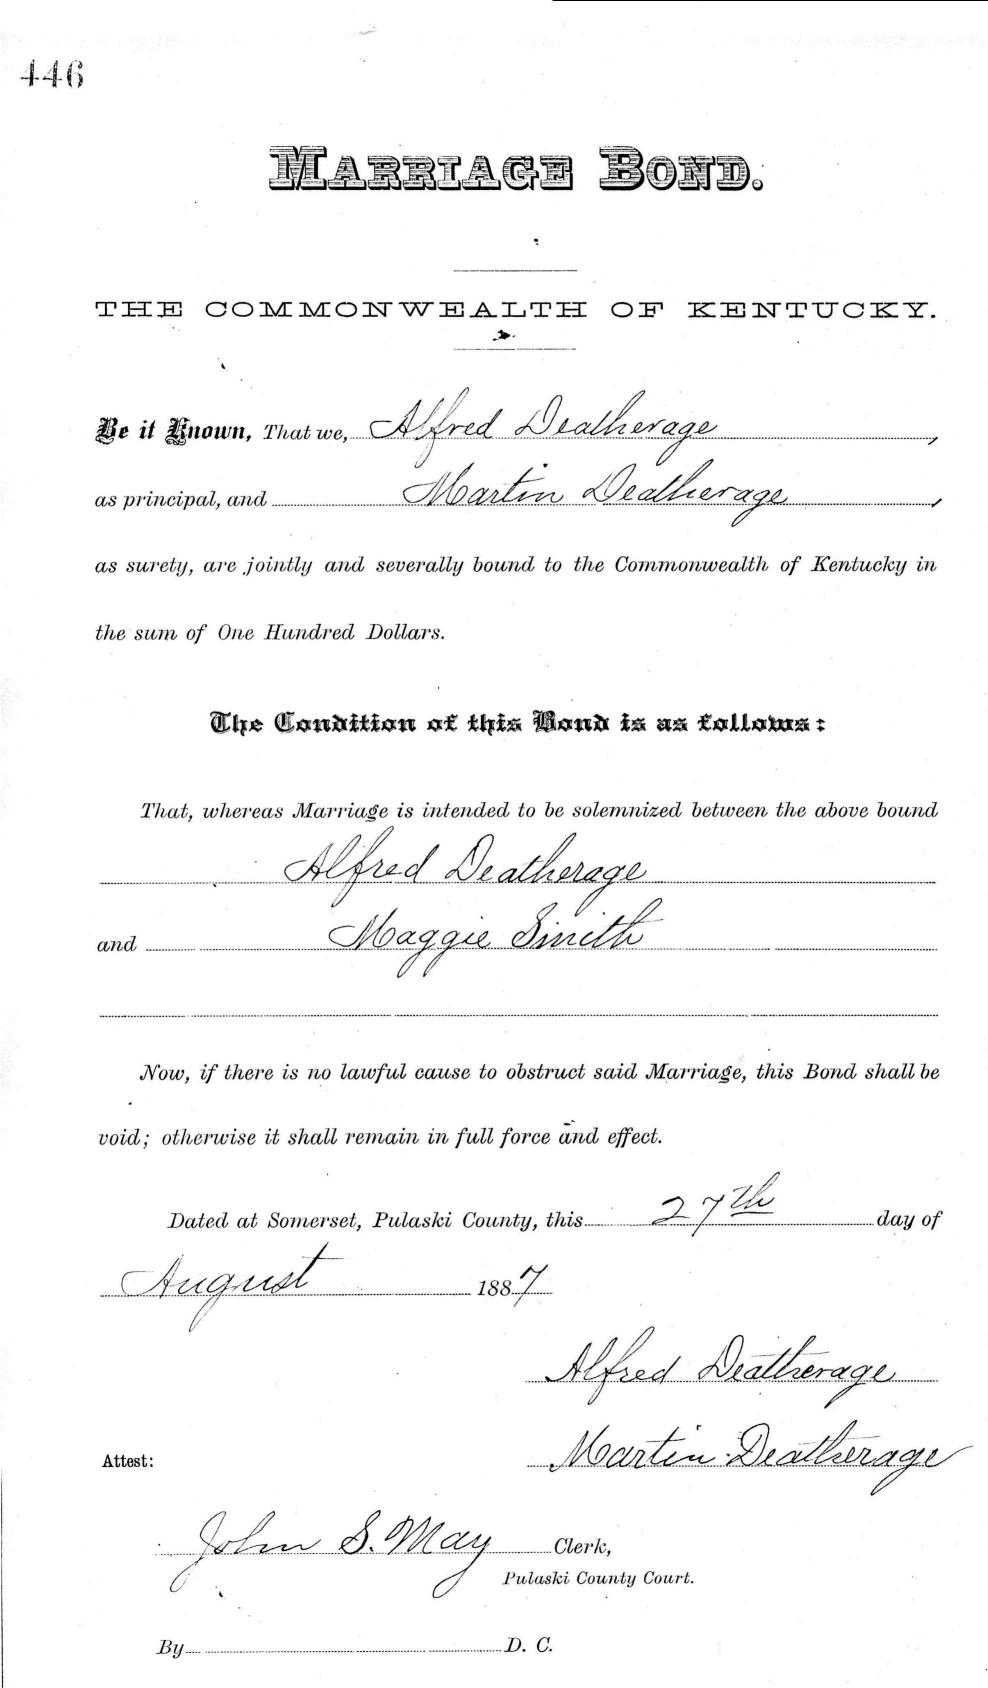 446
MARRIAGE BOND.
THE COMMONWEALTH OF KENTUCKY.
Be it Known, That we, Alfred Deatherage,
as principal, and Martin Deatherage,
as surety, are jointly and severally bound to the Commonwealth of Kentucky in
the sum of One Hundred Dollars.
The Condition of this Bond is as follows:
That, whereas Marriage is intended to be solemnized between the above bound
Alfred Deatherage
and Maggie Smith
Now, if there is no lawful cause to obstruct said Marriage, this Bond shall be
void; otherwise it shall remain in full force and effect.
Dated at Somerset, Pulaski County, this 27th day of
August 1887
Alfred Deatherage
Attest: Martin Deatherage
John S. May Clerk,
Pulaski County Court.
By D. C.